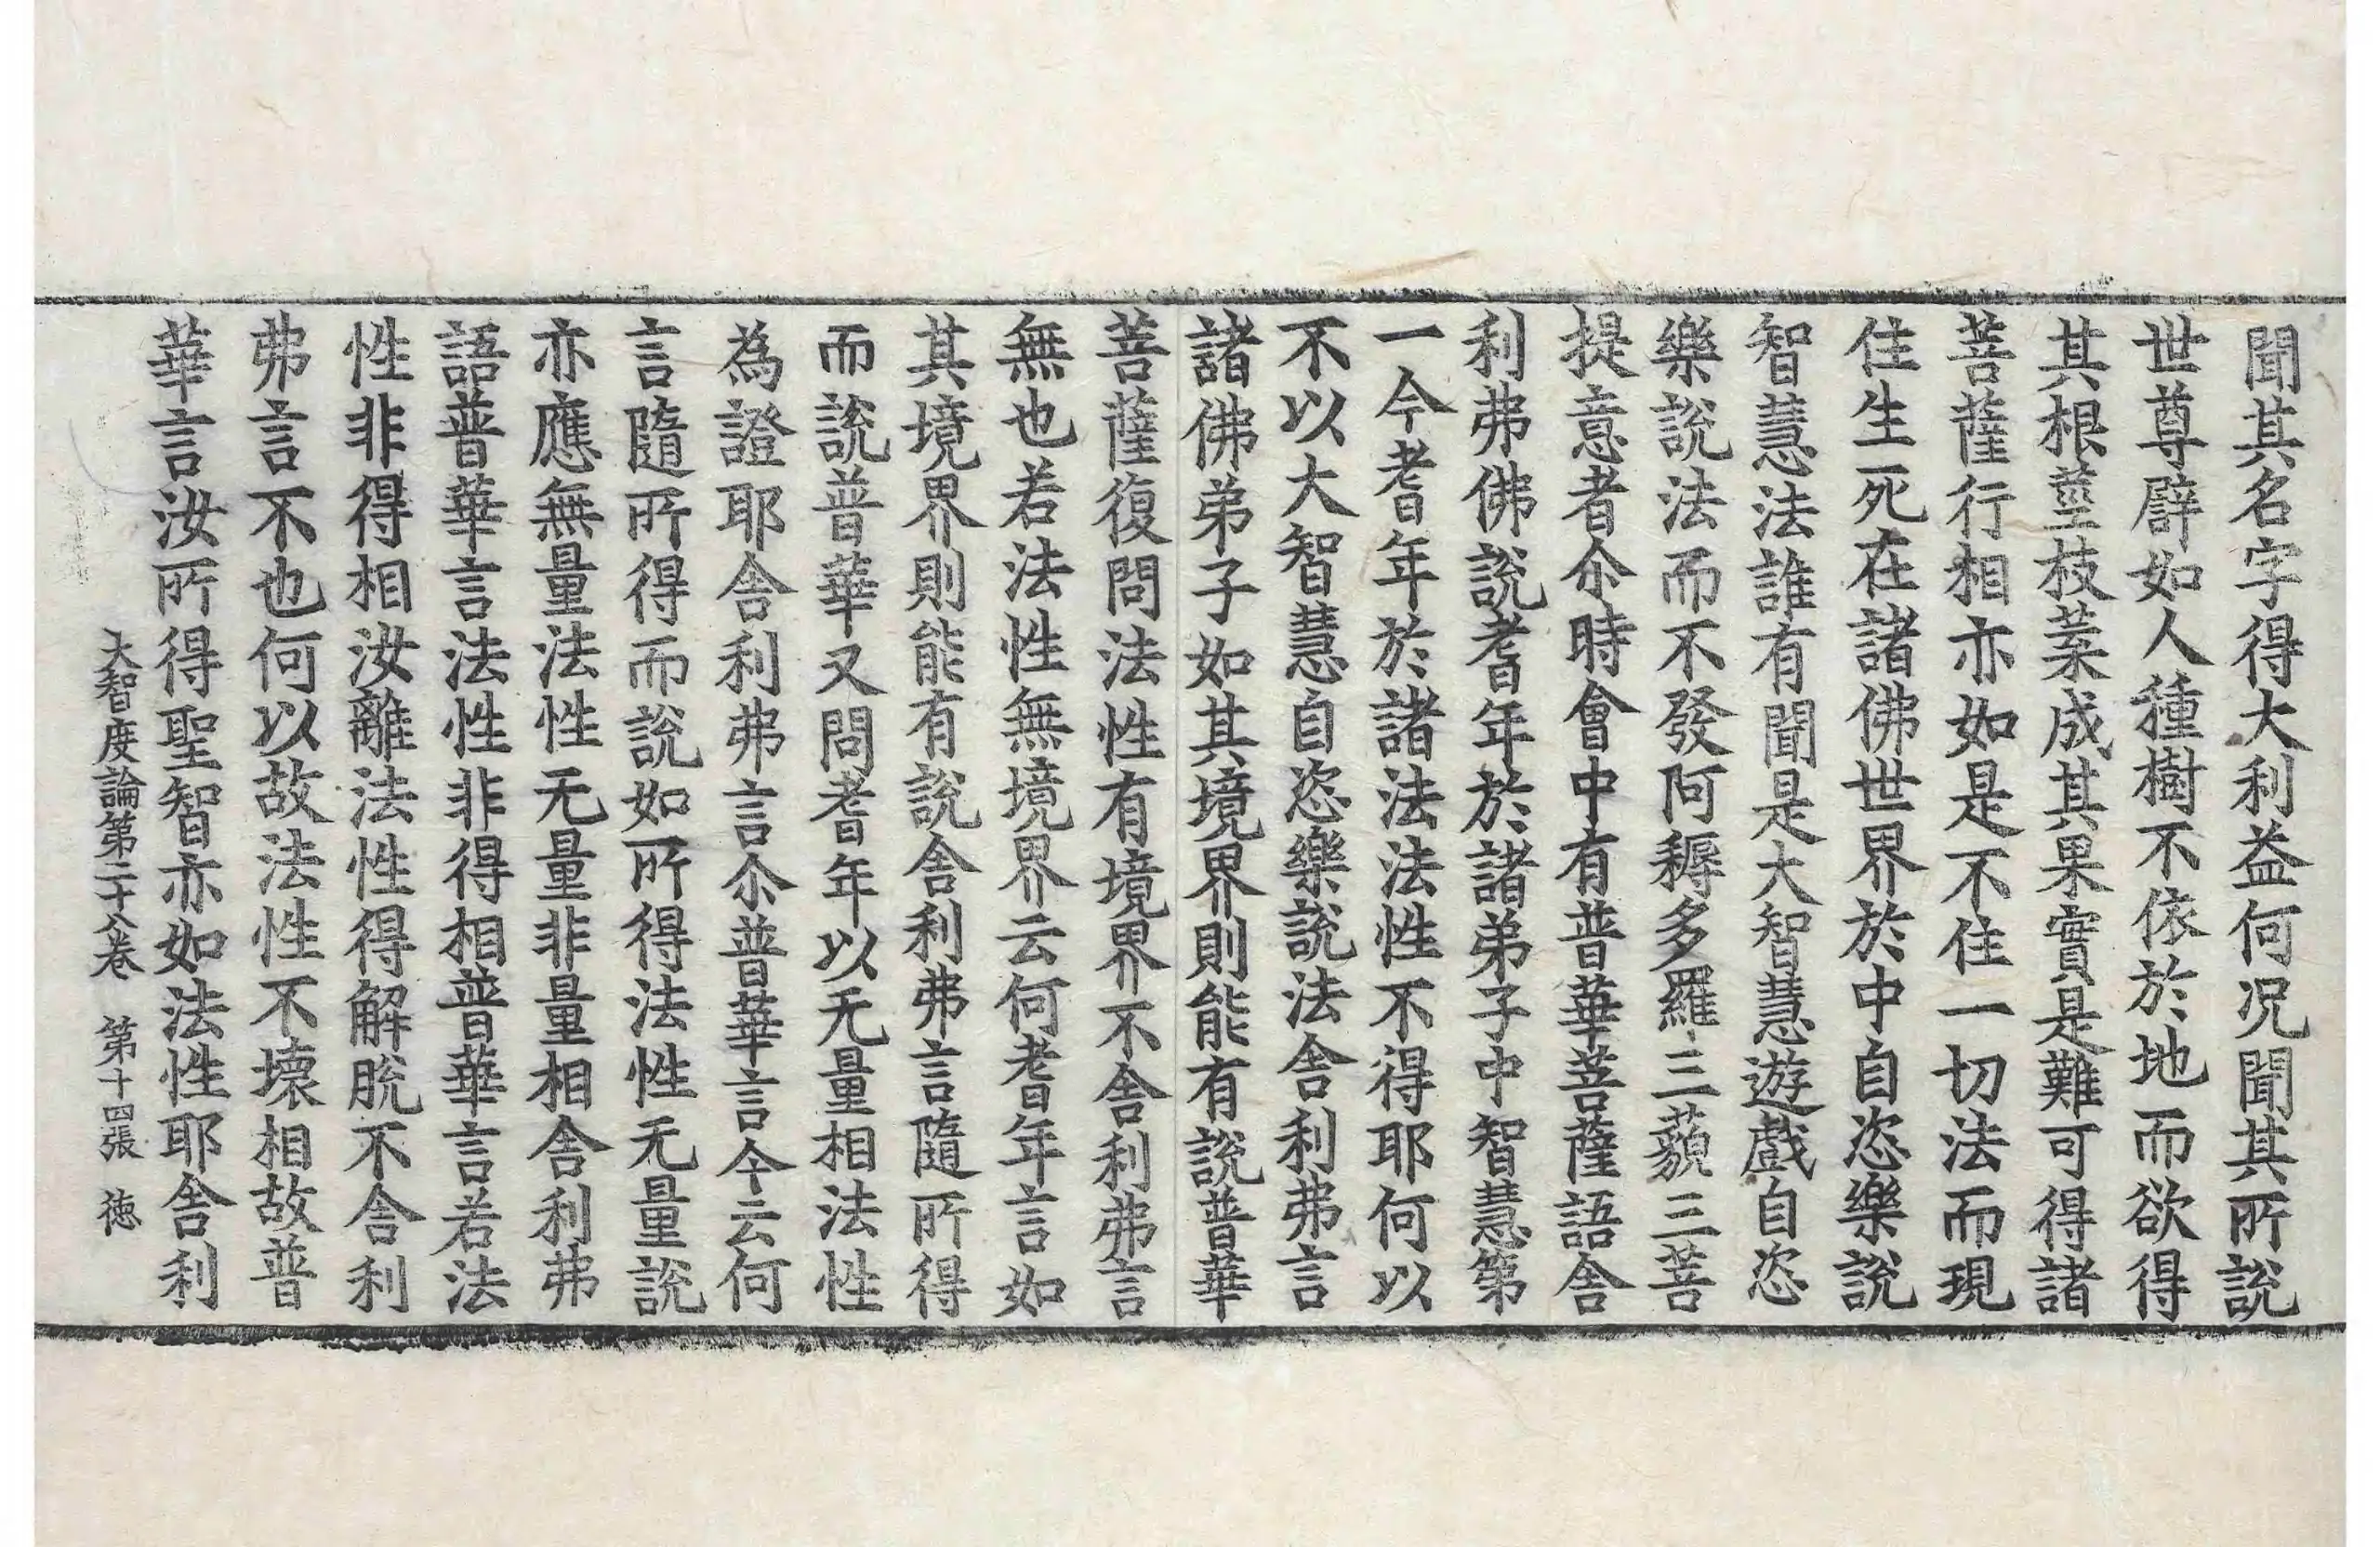 聞其名字得大利益何況聞其所說
世尊辟如人種樹不依於地而欲得
其根莖枝葉成其果實是難可得諸
菩薩行相亦如是不住一切法而現
住生死在諸佛世界於中自恣樂說
智慧法誰有聞是大智慧遊戲自恣
樂說法而不發阿耨多羅三藐三菩
提意者尒時會中有普華菩薩語舍
利弗佛說耆年於諸弟子中智慧第
一今耆年於諸法法性不得耶何以
不以大智慧自恣樂說法舍利弗言
諸佛弟子如其境界則能有說普華
菩薩復問法性有境界不舍利弗言
無也若法性無境界云何耆年言如
其境界則能有說舍利弗言隨所得
而說普華又問耆年以无量相法性
為證耶舍利弗言尒普華言今云何
言隨所得而說如所得法性无量說
亦應無量法性无量非量相舍利弗
語普華言法性非得相普華言若法
性非得相汝離法性得解脫不舍利
弗言不也何以故法性不壞相故普
華言汝所得聖智亦如法性耶舍利
大智度論第二十八卷　第十四張　徳